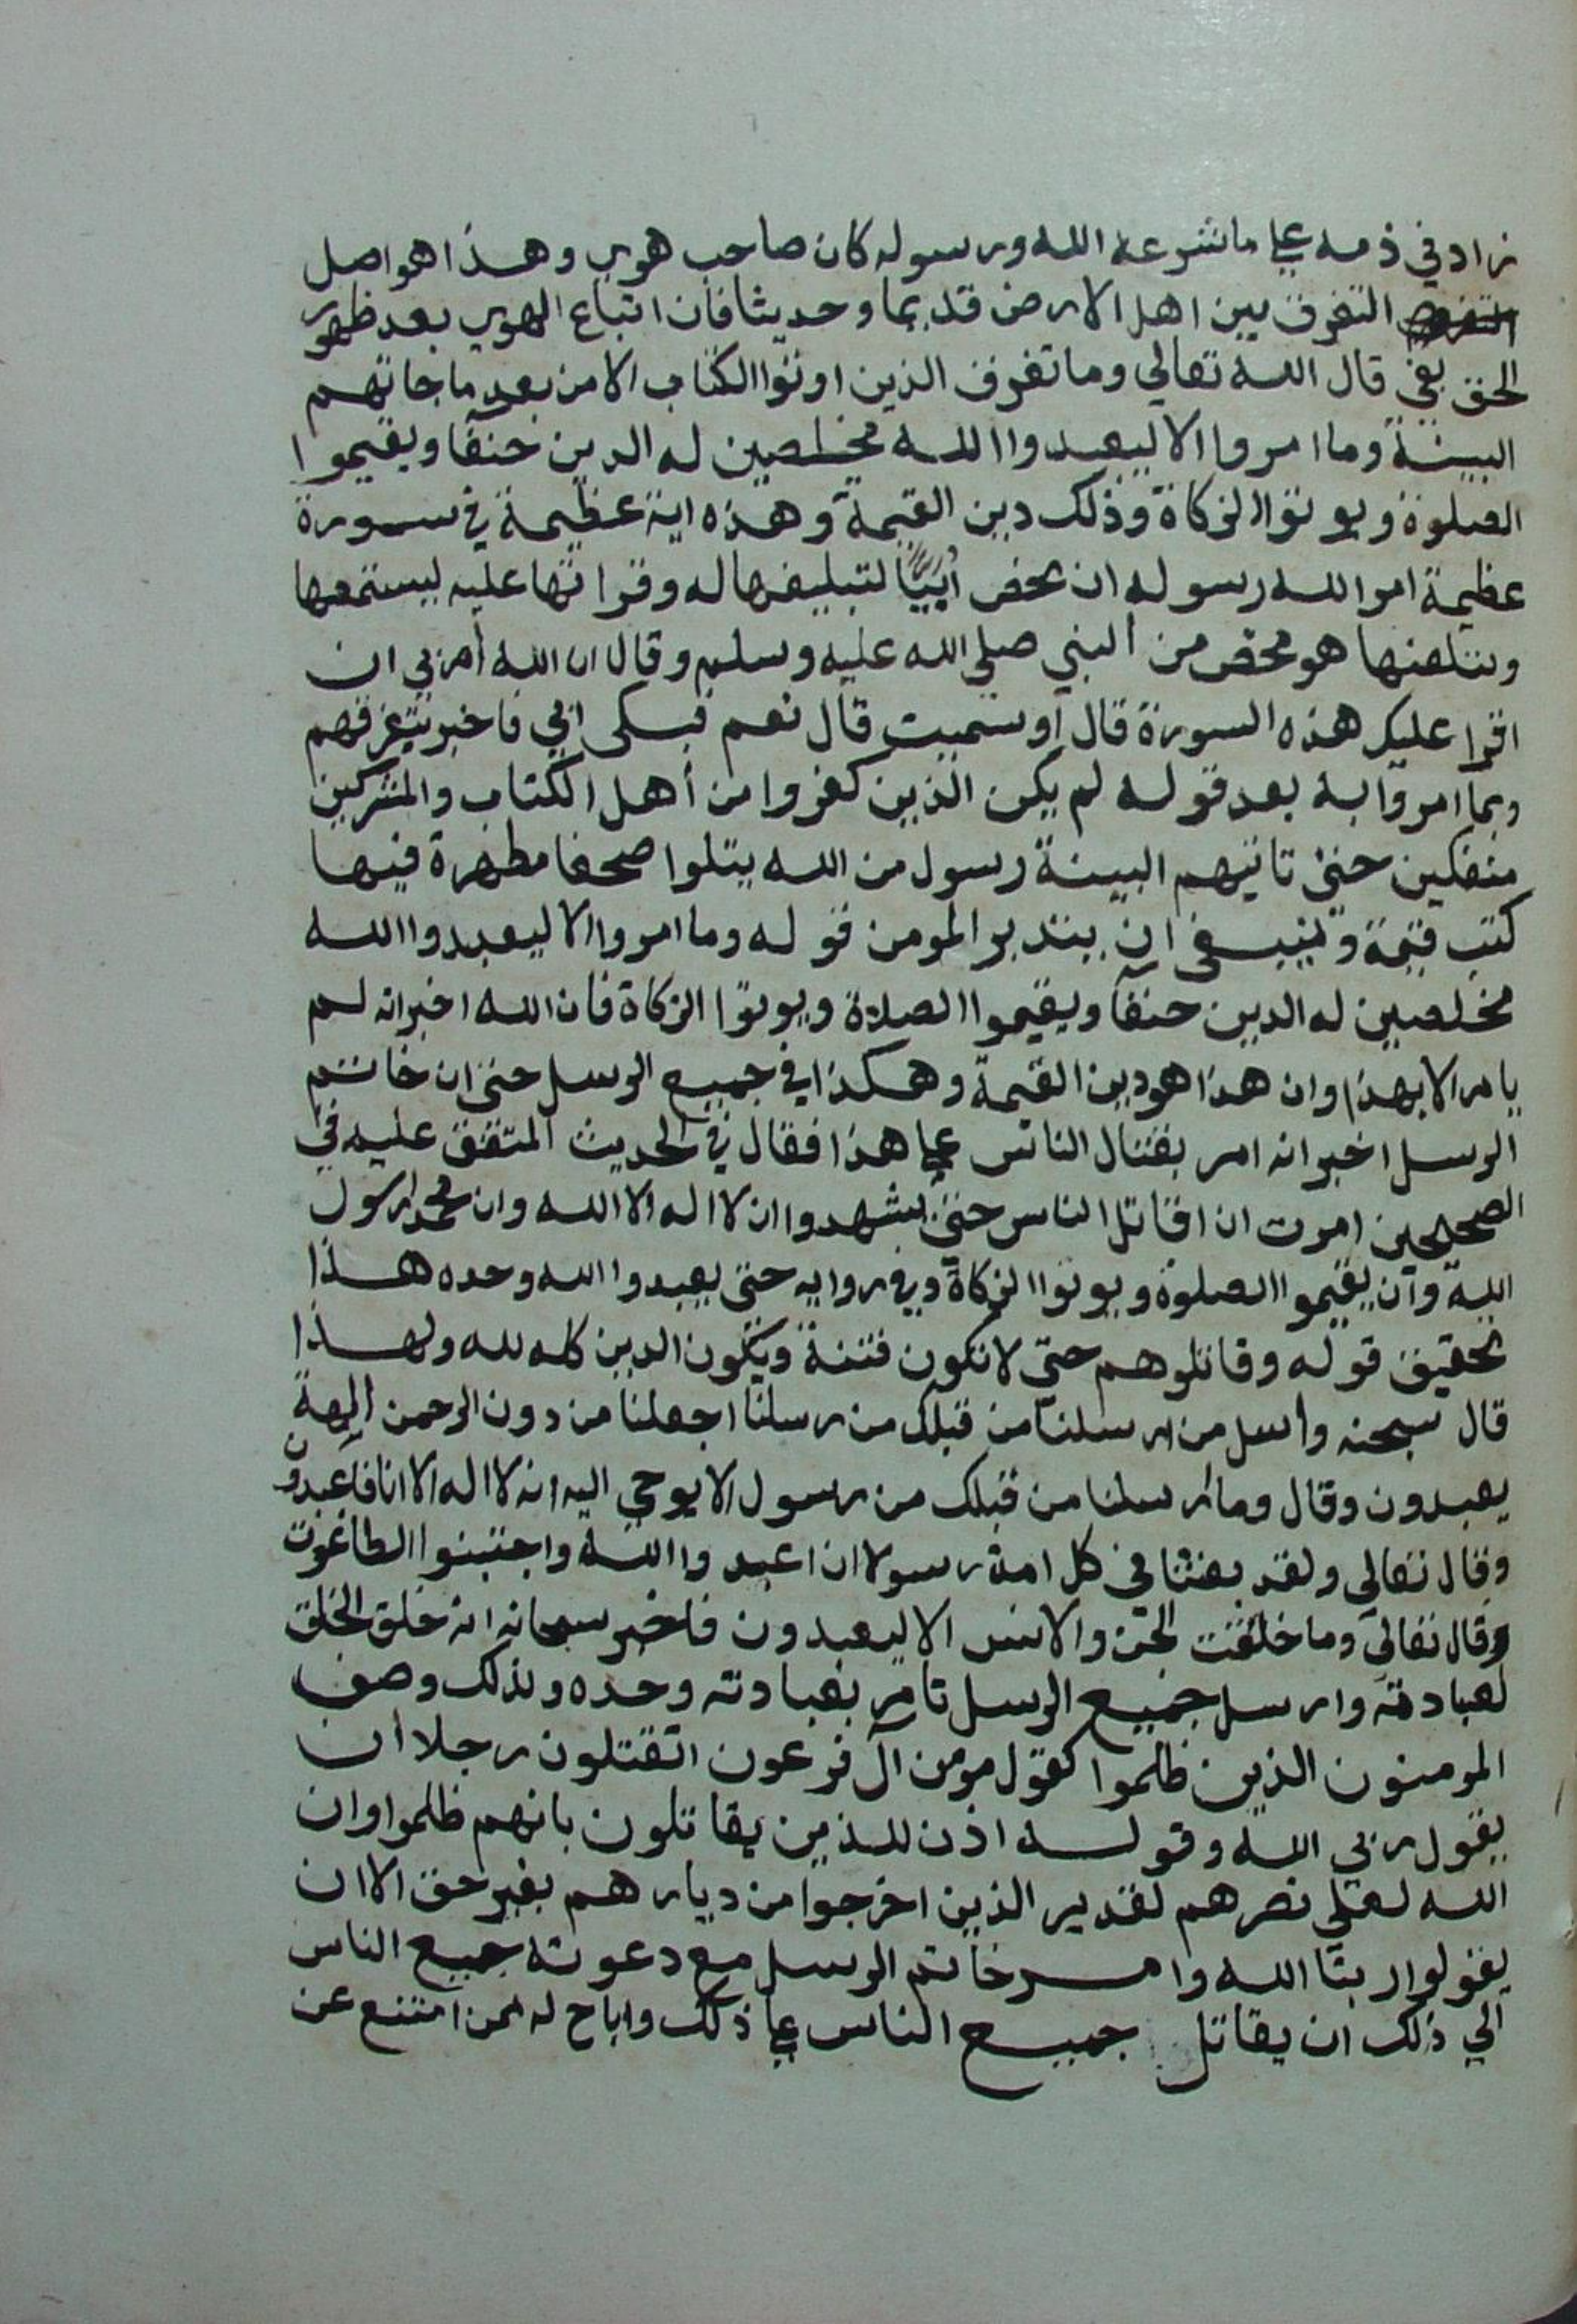 زاد في ذمه علي ما شرعه الله ورسوله كان صاحب هوي وهذا هو اصل
التفرق بين اهل الارض قديما وحديثا فان اتباع الهوي بعد ظهور
الحق بغي قال الله تعالي وما تفرق الذين اوتوا الكتاب الا من بعد ما جاتهم
البينة وما امروا الا ليعبدوا الله مخلصين له الدين حنفا ويقيموا
الصلوة ويوتوا الزكاة وذلك دين القيمة وهذه اية عظيمة في سورة
عظيمة امر الله رسوله ان يخص أبيًّا لتبليغها له وقراتها عليه ليستمعها
ويتلقنها هو مخض من النبي صلي الله عليه وسلم وقال ان الله أمرني ان
اقرا عليك هذه السورة قال أو سميت قال نعم فبكى ابي فاخبر بتفرقهم
وبما امروا به بعد قوله لم يكن الذين كفروا من أهل الكتاب والمشركين
منفكين حتى تاتيهم البينة رسول من الله يتلوا صحفا مطهرة فيها
كتب قيمة وينبغي ان يتدبر المومن قوله وما امروا الا ليعبدوا الله
مخلصين له الدين حنفا ويقيموا الصلاة ويوتوا الزكاة فان الله اخبر انه لم
يامر الا بهذا وان هذا هو دين القيمة وهكذا في جميع الرسل حتى ان خاتم
الرسل اخبر انه امر بقتال الناس علي هذا فقال في الحديث المتفق عليه في
الصحيحين امرت ان اقاتل الناس حتى يشهدوا ان لا اله الا الله وان محمدا رسول
الله وأن يقيموا الصلوة ويوتوا الزكاة وفي رواية حتى يعبدوا الله وحده هذا
تحقيق قوله وقاتلوهم حتي لا تكون فتنة ويكون الدين كله لله ولهذا
قال سبحنه واسل من ارسلنا من قبلك من رسلنا اجعلنا من دون الرحمن الهة
يعبدون وقال وما ارسلنا من قبلك من رسول الا يوحي اليه انه لا اله الا انا فاعبدون
وقال تعالي ولقد بعثنا في كل امة رسولا ان اعبدوا الله واجتنبوا الطاغوت
وقال تعالي وما خلقت الجن والانس الا ليعبدون فاخبر سبحانه انه خلق الخلق
لعبادته وارسل جميع الرسل تامر بعبادته وحده وبذلك وصف
المومنون الذين ظلموا كقول مومن آل فرعون اتقتلون رجلا أن
يقول ربي الله وقوله اذن للذين يقاتلون بانهم ظلموا وان
الله لعلي نصرهم لقدير الذين اخرجوا من ديارهم بغير حق الا ان
يقولوا ربنا الله وامر خاتم الرسل مع دعوته جميع الناس
الي ذلك ان يقاتل جميع الناس علي ذلك واباح له ممن امتنع عن